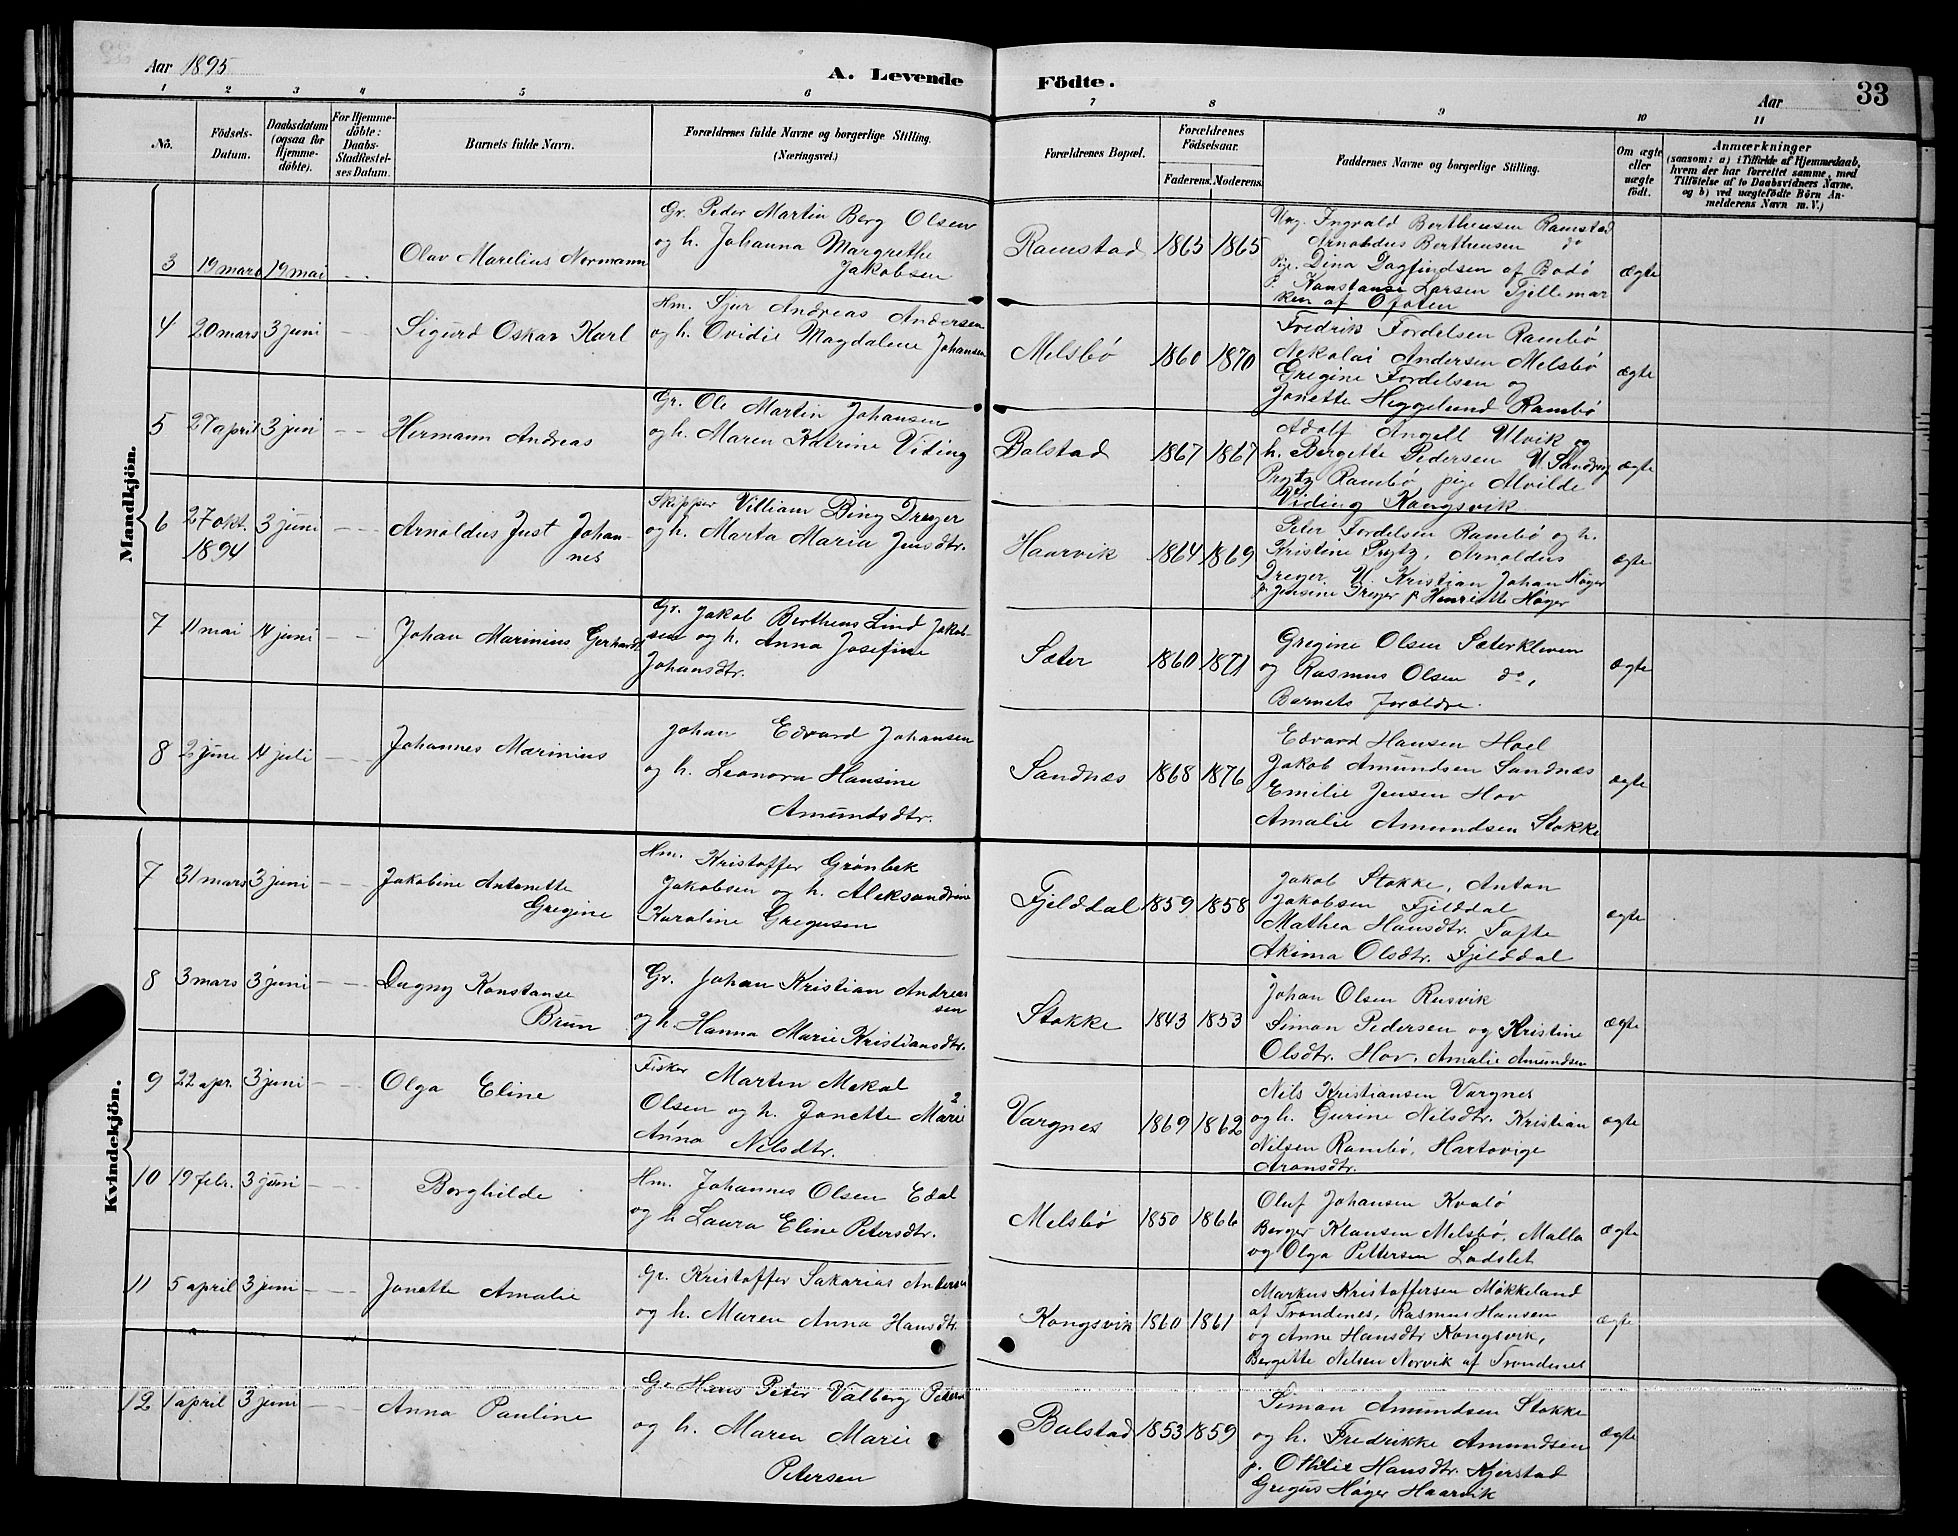 Aar 1895
A. Levende Födte.
Aar
33
1 2 3 4 5 6 7 8 9 10 11
No.
Födsels-Datum.
Daabsdatum (ogsaa for Hjemme-döbte).
For Hjemme-döbte: Daabs-Stadfæstel-ses Datum.
Barnets fulde Navn.
Forældrenes fulde Navne og borgerlige Stilling. (Næringsvei.)
Forældrenes Bopæl.
Forældrenes Födselsaar.
Faderens. Moderens.
Faddernes Navne og borgerlige Stilling.
Om ægte eller uægte födt.
Anmærkninger
(saasom: a) i Tilfælde af Hjemmedaab,
hvem der har forrettet samme, med
Tilföielse af to Daabsvidners Navne,
og b) ved uægtefödte Börn An-
melderens Navn m. V.)
Mandkjön.
3 19 mars 19 mai - - Olav Marelius Normann
Gr. Peder Martin Berg Olsen
og h. Johanna Margrethe
Jakobsen
Ramstad 1863 1865
Ung. Ingvald Berthensen Ramstad
Arnoldus Berthensen do
Pige. Dina Dagfindsen af Bodö
p. Konstanse Larsen Fjellemar
ken af Ofoten
ægte
4 20 mars 3 juni - - Sigurd Oskar Karl
Hm. Sjur Andreas Andersen
og h. Ovidie Magdalene Johansen
Melsbö 1860 1870
Fredrik Fordelsen Rambö
Nekolai Andersen Melsbö
Gregine Fordelsen og
Jonette Heggelund Rambö
ægte
5 27 april 3 juni - - Hermann Andreas
Gr. Ole Martin Johansen
og h. Maren Katrine Viding
Balstad 1867 1867
Adolf Angell Ulvik og
h. Bergette Pedersen U. Sandvig
Prytz Rambö pige Alvilde
Viding Kongsvik
ægte
6 27 okt. 1894 3 juni - - Arnoldus Just Johan-
nes
Skipper Villiam Bing Dreyer
og h. Marta Maria Jensdtr.
Haarvik 1864 1869
Peter Fordelsen Rambö og h.
Kristine Prytz, Arnoldus
Dreyer U. Kristian Johan Höger
p. Jensine Dreyer p Henriette Höger
ægte
7 11 mai 14 juni - - Johan Marinius Gerhardt
Gr. Jakob Berthens Lind Jakob-
sen og h. Anna Josefine
Johansdtr.
Sæter 1860 1871
Gregine Olsen Sæterkleven
og Rasmus Olsen do,
Barnets Foræld​re.
ægte
8 2 june 14 juli - - Johannes Marinius
Johan Edvard Johansen
og h. Leonora Hansine
Amundsdtr.
Sandnæs 1868 1876
Edvard Hansen Hoel
Jakob Amundsen Sandnæs
Emelie Jensen Hov
Amalie Amundsen Stokke
ægte
Kvindekjön.
7 31 mars 3 juni - - Jakobine Antonette
Gregine
Hm. Kristoffer Grönbek
Jakobsen og h. Aleksandrine
Karoline Gregusen
Fjelddal 1859 1858
Jakob Stokke, Anton
Jakobsen Fjelddal
Mathea Hansdtr. Tofte
Akima Olsdtr. Fjelddal
ægte
8 3 mars 3 juni - - Dagny Konstanse
Brun
Gr. Johan Kristian Andreas
sen
og h. Hanna Marie Kristiansdtr.
Stokke 1843 1853
Johan Olsen Rusvik
Simon Pedersen og Kristine
Olsdtr. Hov. Amalie Amundsen
ægte
9 22 apr. 3 juni - - Olga Eline
Fisker Martin Mekal
Olsen og h. Jonette Marie
Anna Nelsdtr.
Vargnes 1869 1862
Nils Kristiansen Vargnes
og h. Gurine Nilsdtr. Kristian
Nilsen Rambö, Hartovige
Aronsdtr.
ægte
10 19 febr. 3 juni - - Borghilde
Hm. Johannes Olsen Edal
og h Laura Eline Petersdtr.
Melsbö 1850 1866
Oluf Johansen Kvalö
Berger Klausen Melsbö, Malla
og Olga Pettersen Ladslet
ægte
11 5 april 3 juni - - Jonette Amalie
Gr. Kristoffer Sakarias Anders
og h. Maren Anna Hansdtr.
Kongsvik 1860 1861
Markus Kristoffersen Mökkeland
af Trondenes, Rasmus Hansen
og Anne Hansdtr Kongsvik,
Bergette Nilsen Norvik af Trondenes
ægte
12 1 april 3 juni - - Anna Pauline
Gr Hans Peter Valberg Peters
og h. Maren Marie
Petersen
Balstad 1853 1859
Simon Amundsen Stokke
og h. Fredrikke Amundsen
p. Ottilie Hansdtr. Kjerstad
Gregus Höger Haarvik
ægte